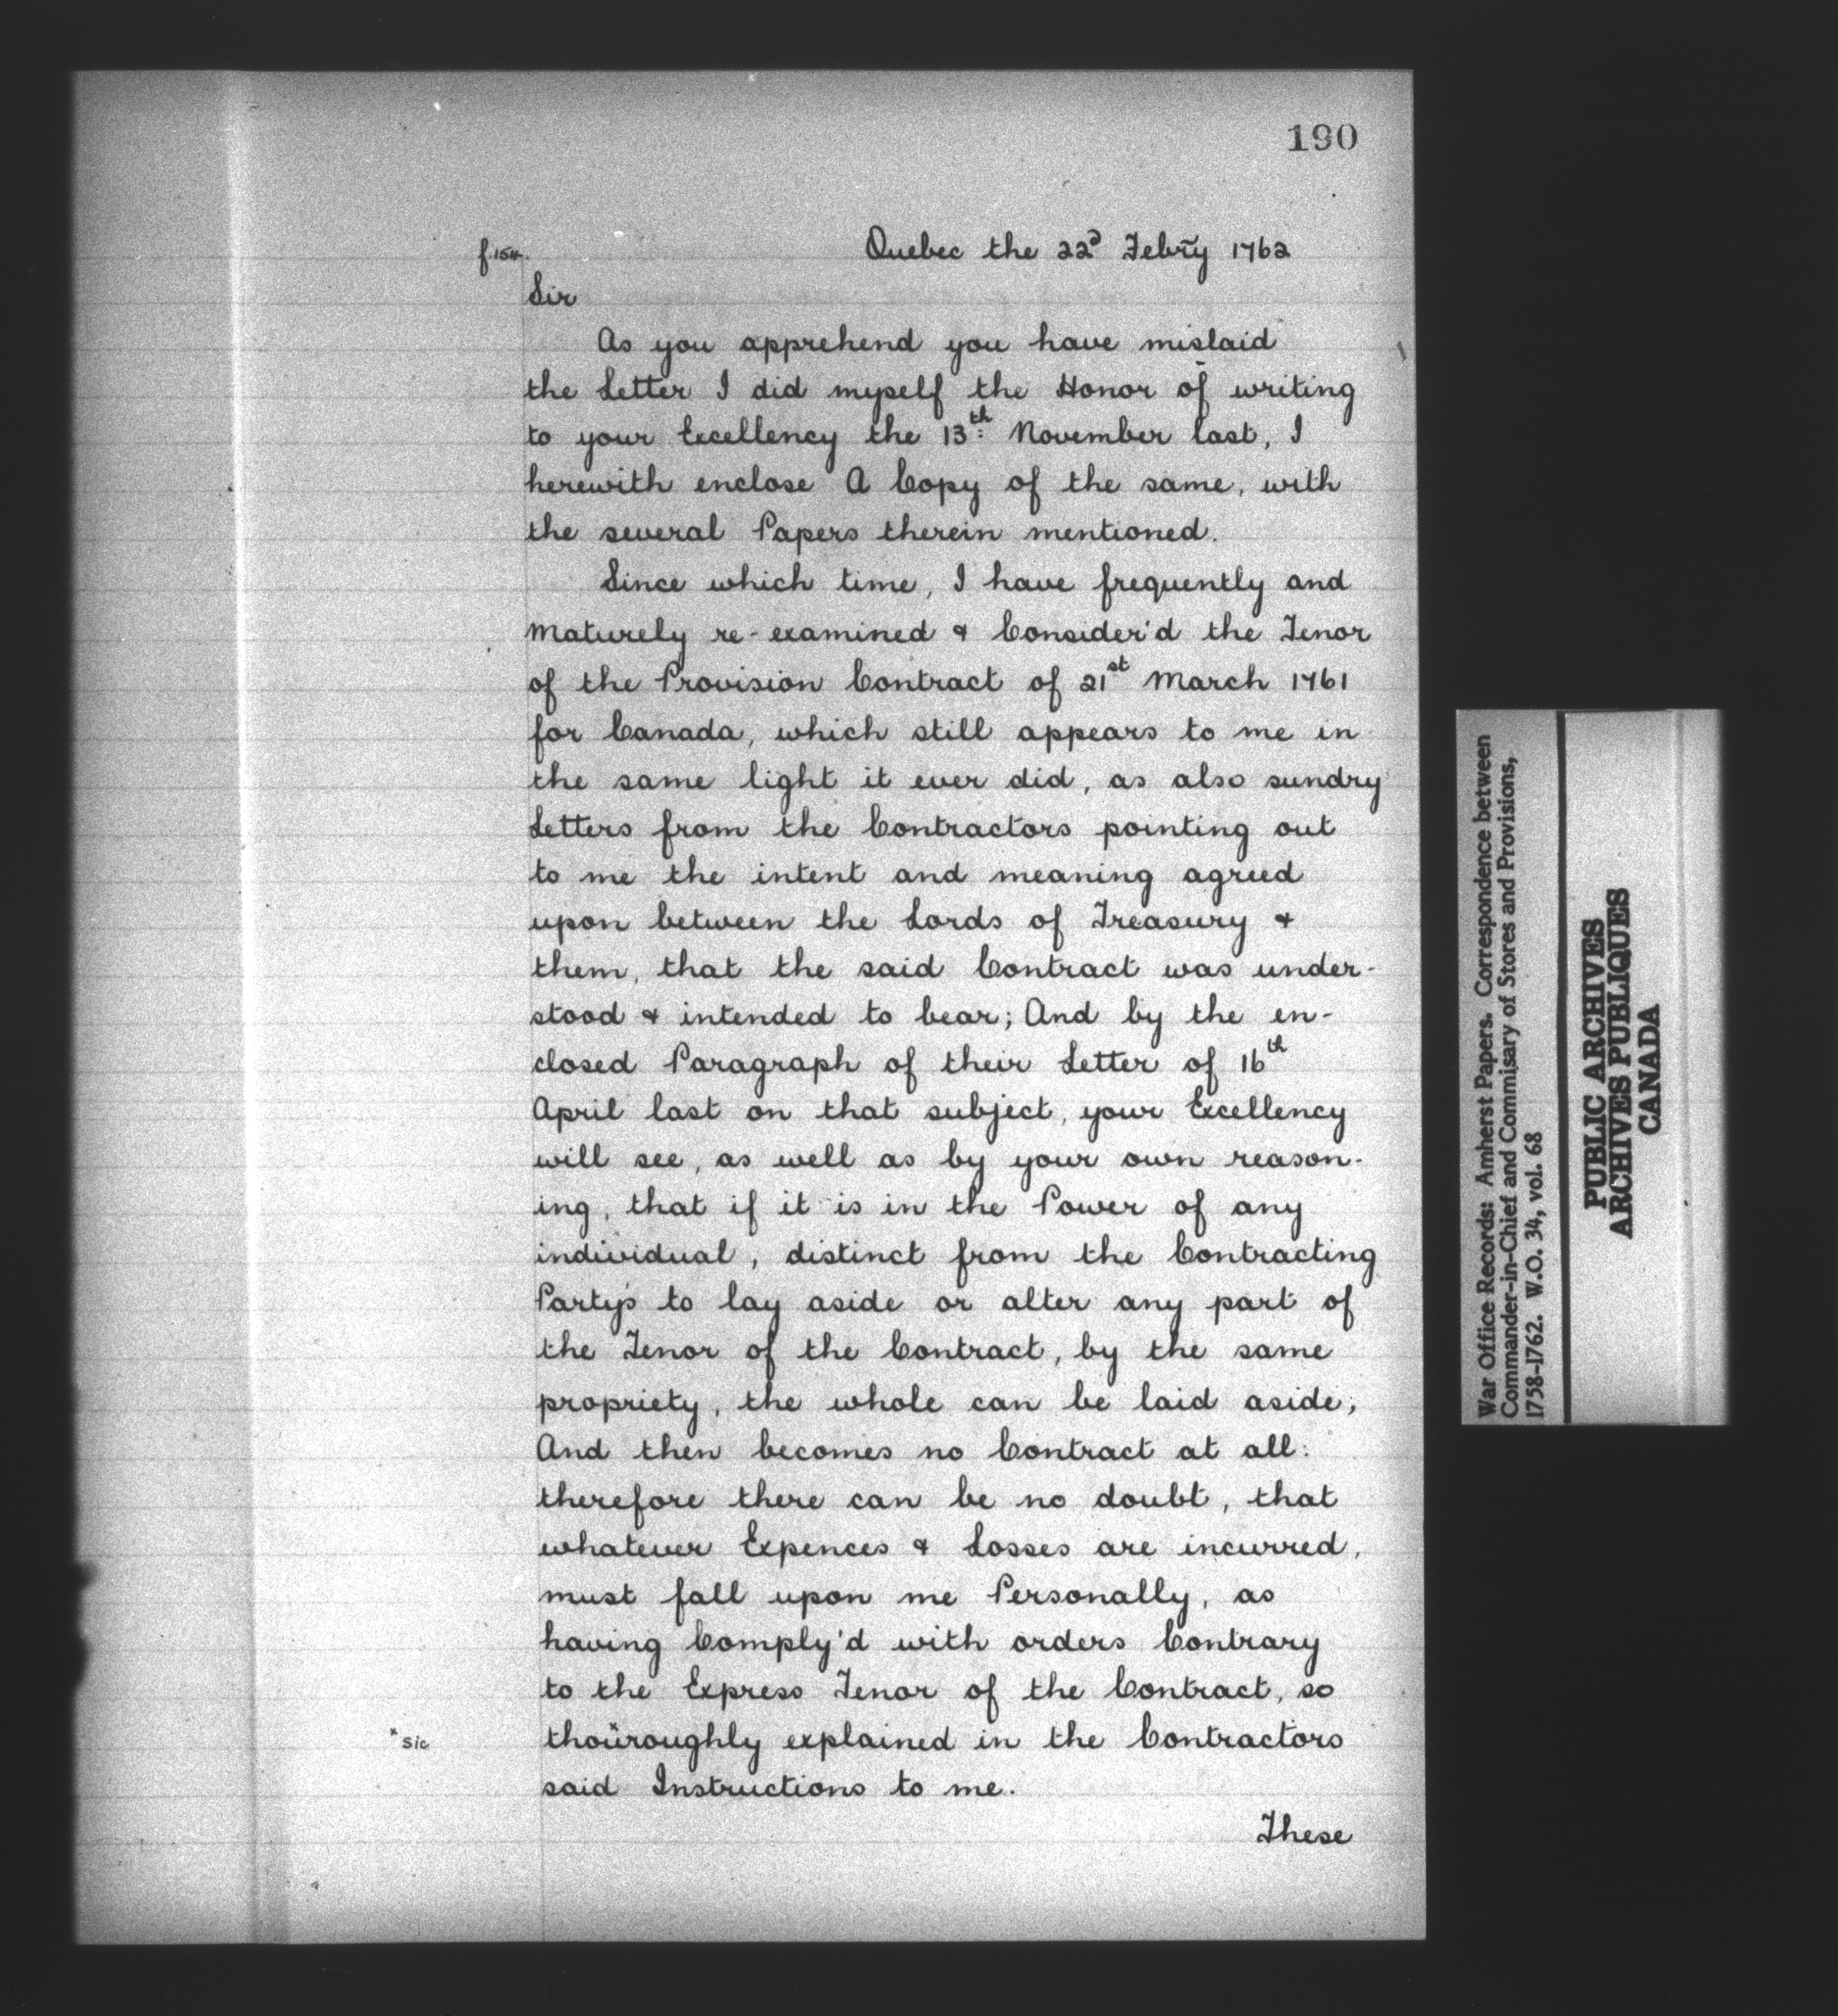 190
f.154.
Quebec the 22d Febry 1762
Sir
As you apprehend you have mislaid
the Letter I did myself the Honor of writing
to your Excellency the 13th: November last, I
herewith enclose A Copy of the same, with
the several Papers therein mentioned.
Since which time, I have frequently and
Maturely re-examined & Consider'd the Tenor
of the Provision Contract of 21st March 1761
for Canada, which still appears to me in
the same light it ever did, as also sundry
Letters from the Contractors pointing out
to me the intent and meaning agreed
upon between the Lords of Treasury &
them, that the said Contract was under-
stood & intended to bear; And by the en-
closed Paragraph of their Letter of 16th
April last on that subject, your Excellency
will see, as well as by your own reason-
ing, that if it is in the Power of any
individual, distinct from the Contracting
Partys to lay aside or alter any part of
the Tenor of the Contract, by the same
propriety, the whole can be laid aside;
And then becomes no Contract at all:
therefore there can be no doubt, that
whatever Expences & Losses are incurred,
must fall upon me Personally, as
having Comply'd with orders Contrary
to the Express Tenor of the Contract, so
* sic
thou*roughly explained in the Contractors
said Instructions to me.
These
War Office Records: Amherst Papers. Correspondence between
Commander-in-Chief and Commisary of Stores and Provisions,
1758-1762. W.O. 34, vol. 68
PUBLIC ARCHIVES
ARCHIVES PUBLIQUES
CANADA